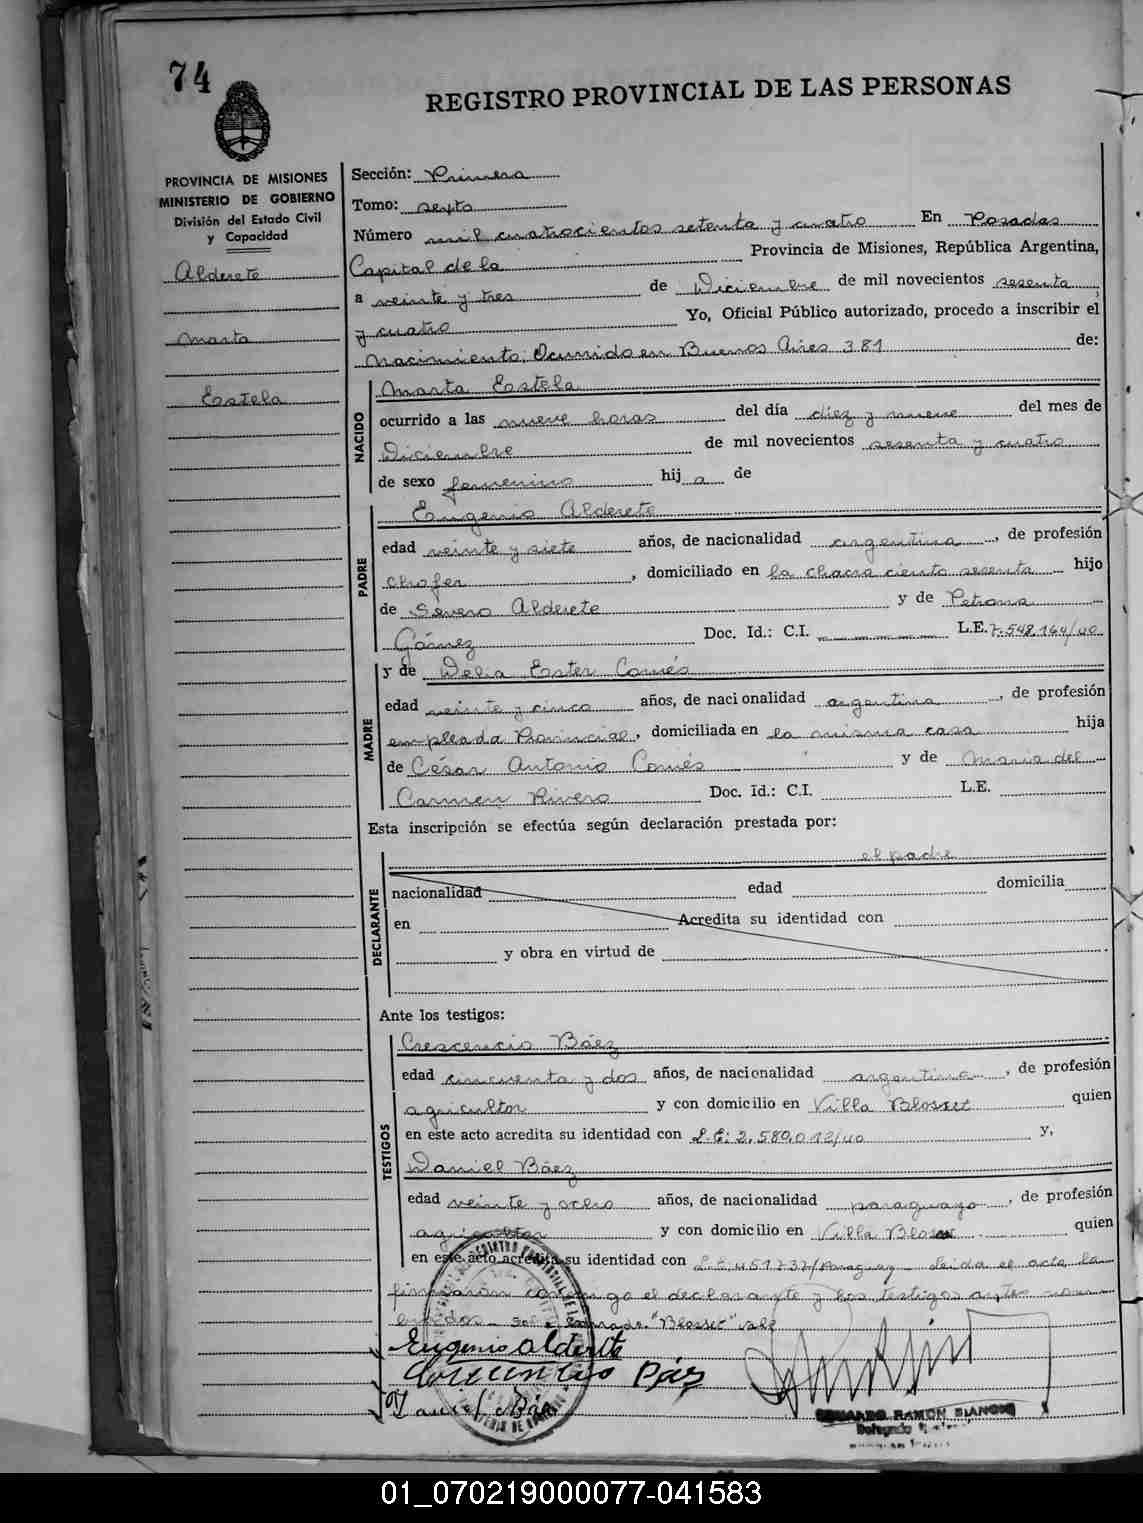 74
REGISTRO PROVINCIAL DE LAS PERSONAS
PROVINCIA DE MISIONES
MINISTERIO DE GOBIERNO
División del Estado Civil
y Capacidad
Alderete
Marta
Estela
Sección: Primera
Tomo: sexto
Número mil cuatrocientos setenta y cuatro En Posadas
Capital de la Provincia de Misiones, República Argentina,
a veinte y tres de Diciembre de mil novecientos sesenta
y cuatro Yo, Oficial Público autorizado, procedo a inscribir el
Nacimiento: Ocurrido en Buenos Aires 381 de:
NACIDO
Marta Estela
ocurrido a las nueve horas del día diez y nueve del mes de
Diciembre de mil novecientos sesenta y cuatro
de sexo femenino hij a de
PADRE
Eugenio Alderete
edad veinte y siete años, de nacionalidad argentina, de profesión
chofer, domiciliado en la chacra ciento sesenta hijo
de Severo Alderete y de Petrona
Gómez Doc. Id.: C.I. L.E. 7.548.164/00
MADRE
y de Delia Ester Comés
edad veinte y cinco años, de nacionalidad argentina, de profesión
empleada Provincial, domiciliada en la misma casa hija
de César Antonio Comés y de Maria del
Carmen Rivero Doc. Id.: C.I. L.E.
Esta inscripción se efectúa según declaración prestada por:
DECLARANTE
el padre
nacionalidad edad domicilia
en Acredita su identidad con
y obra en virtud de
Ante los testigos:
TESTIGOS
Crescencio Báez
edad cincuenta y dos años, de nacionalidad argentina, de profesión
agricultor y con domicilio en Villa Blosset quien
en este acto acredita su identidad con L.E: 2.589.012/00 y,
Daniel Báez
edad veinte y ocho años, de nacionalidad paraguayo, de profesión
agricultor y con domicilio en Villa quien
en este acto acredita su identidad con Paraguay - Leida el acta la
firmaron conmigo el declarante y los testigos antes nom-
brados - "Blosset" vale
Eugenio Alderete
Crescencio Báez
Daniel Báez
EDUARDO RAMON BIANCHI
Delegado
01_070219000077-041583